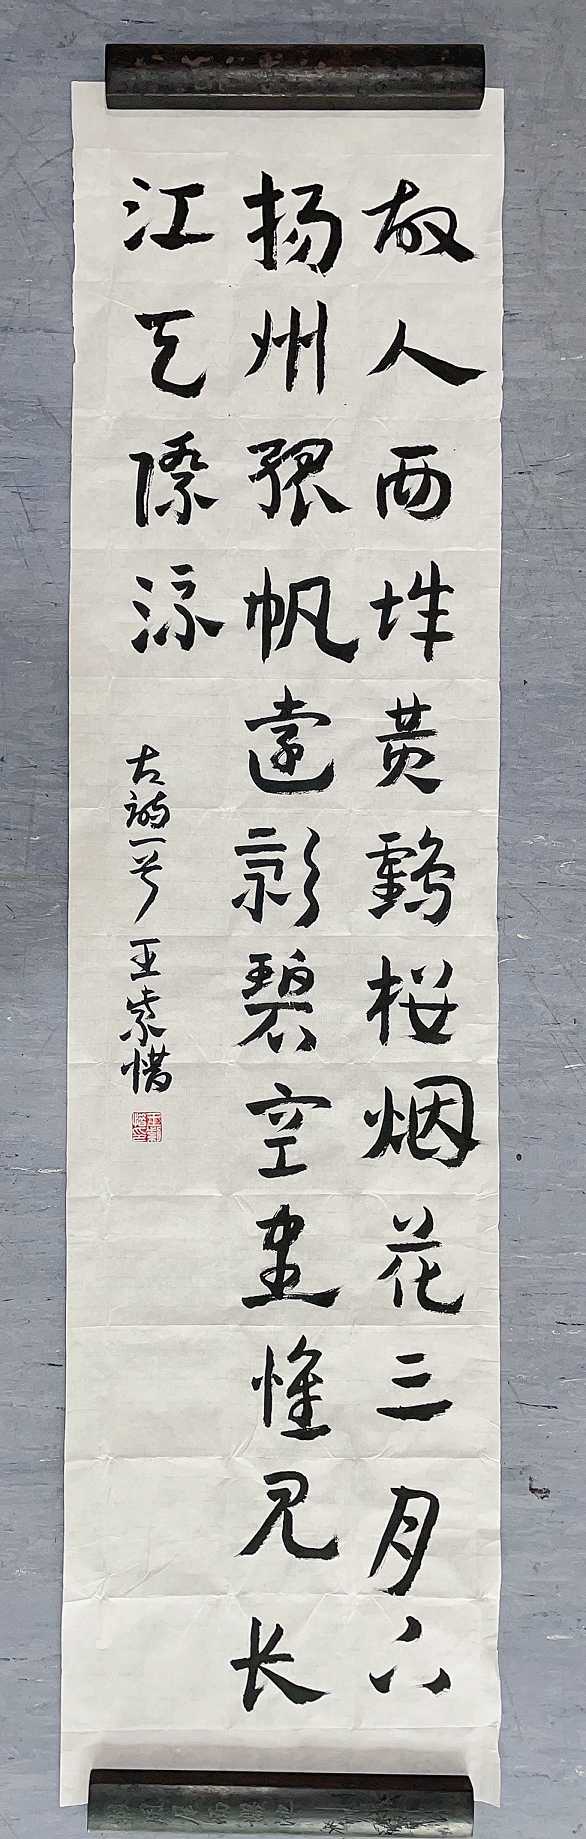 故人西辞黄鹤楼烟花三月下
扬州孤帆远影碧空尽惟见长
江天际流
古诗一首 王紫惜